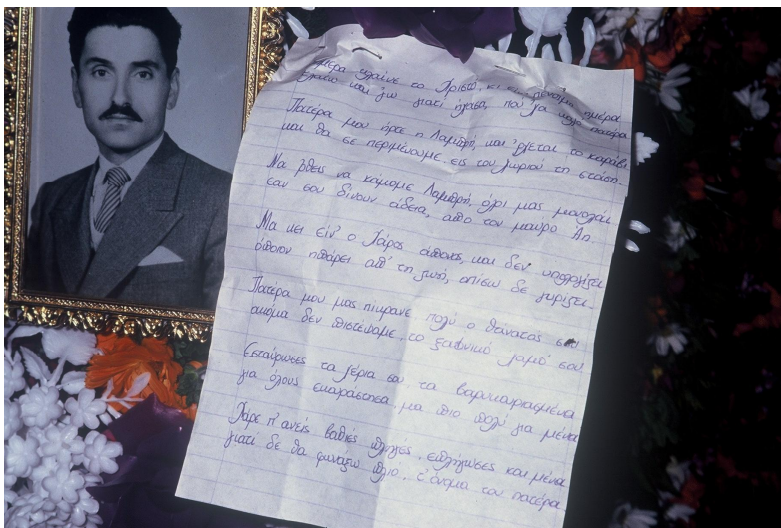 μέρα κλαίνε το Χριστό, κι
κλαίω και γω γιατί έχασα, πατέρα
Πατέρα μου ήρτε η Λαμπρή, και έρχεται το καράβι
και θα σε περιμένουμε εις του χωριού τη στάση.
Μα ρθεις να κάμομε Λαμπρή, όλοι μας μονολάι
σαν σου δίνουν άδεια, απο τον μαύρο Άη.
Μα κει είν' ο Χάρος άπονος, και δεν υπολογίζει
όποιον πάρει απ' τη ζωή, οπίσω δε γυρίζει
Πατέρα μου μας πίκρανε πολύ ο θάνατος σου
ακόμα δεν πιστεύομε, το ξαφνικό χαμό σου.
Εσταύρωσες τα χέρια σου, τα βαρυκαιρισμένα
για όλους εκουράστησα, μα πιο πολύ για μένα
Χάρε π' ανείς βαθιές πληγές, επλήγωσες και μένα
γιατί δε θα φωνάξω πλιό, τ' όνομα του πατέρα